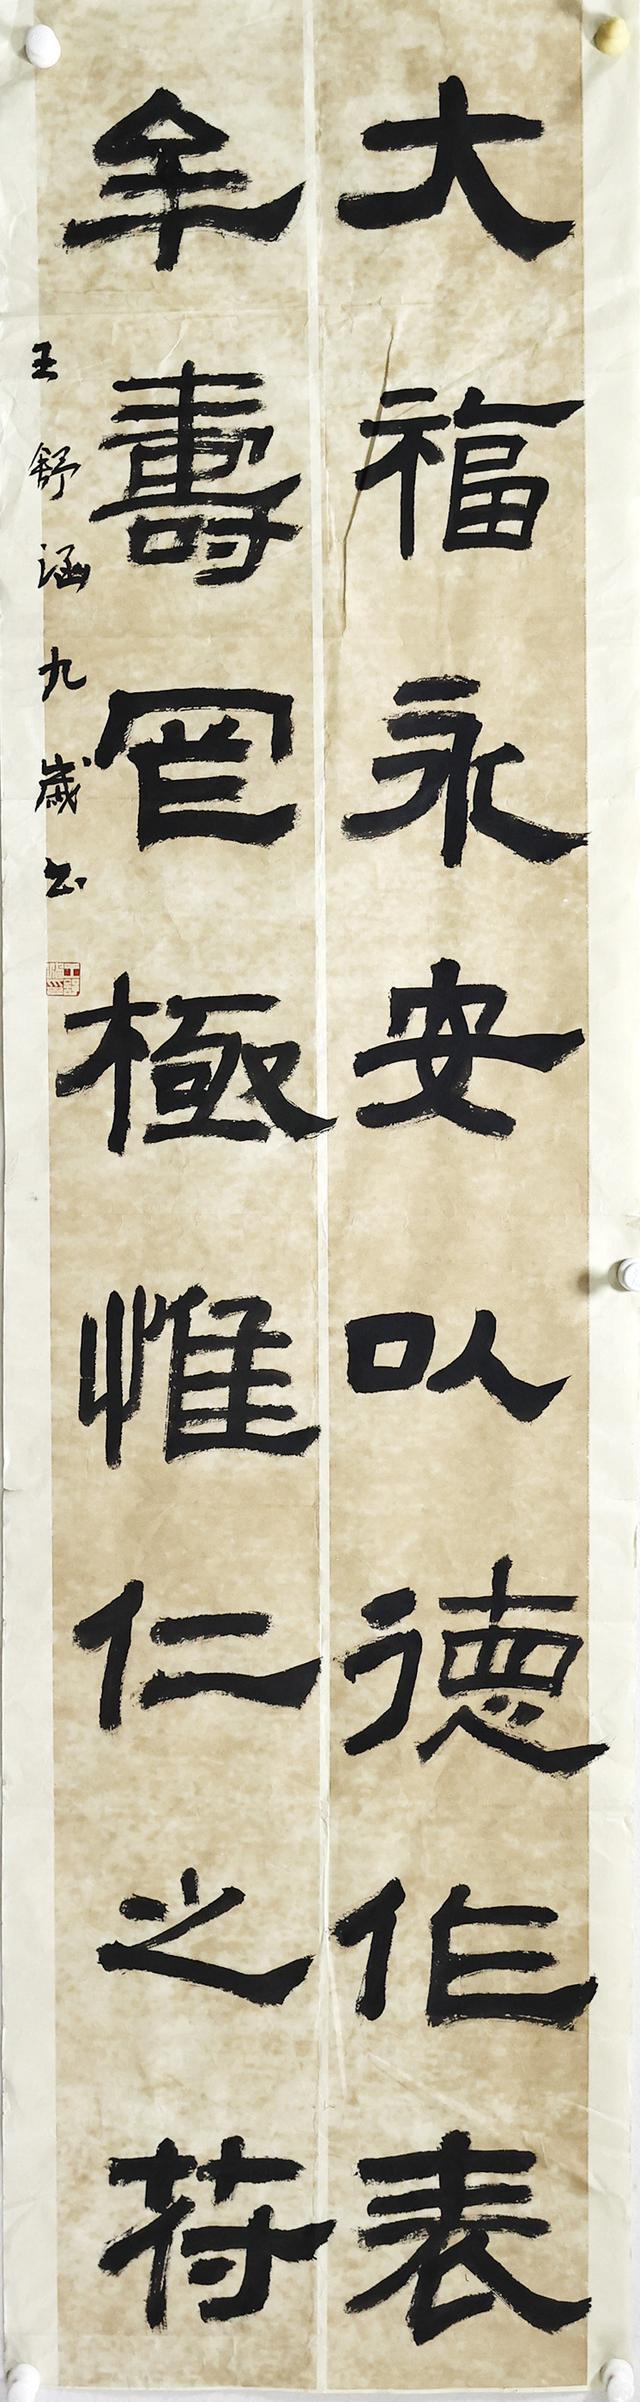 大福永安以德作表
年壽罔極惟仁之符
王舒涵九歲书